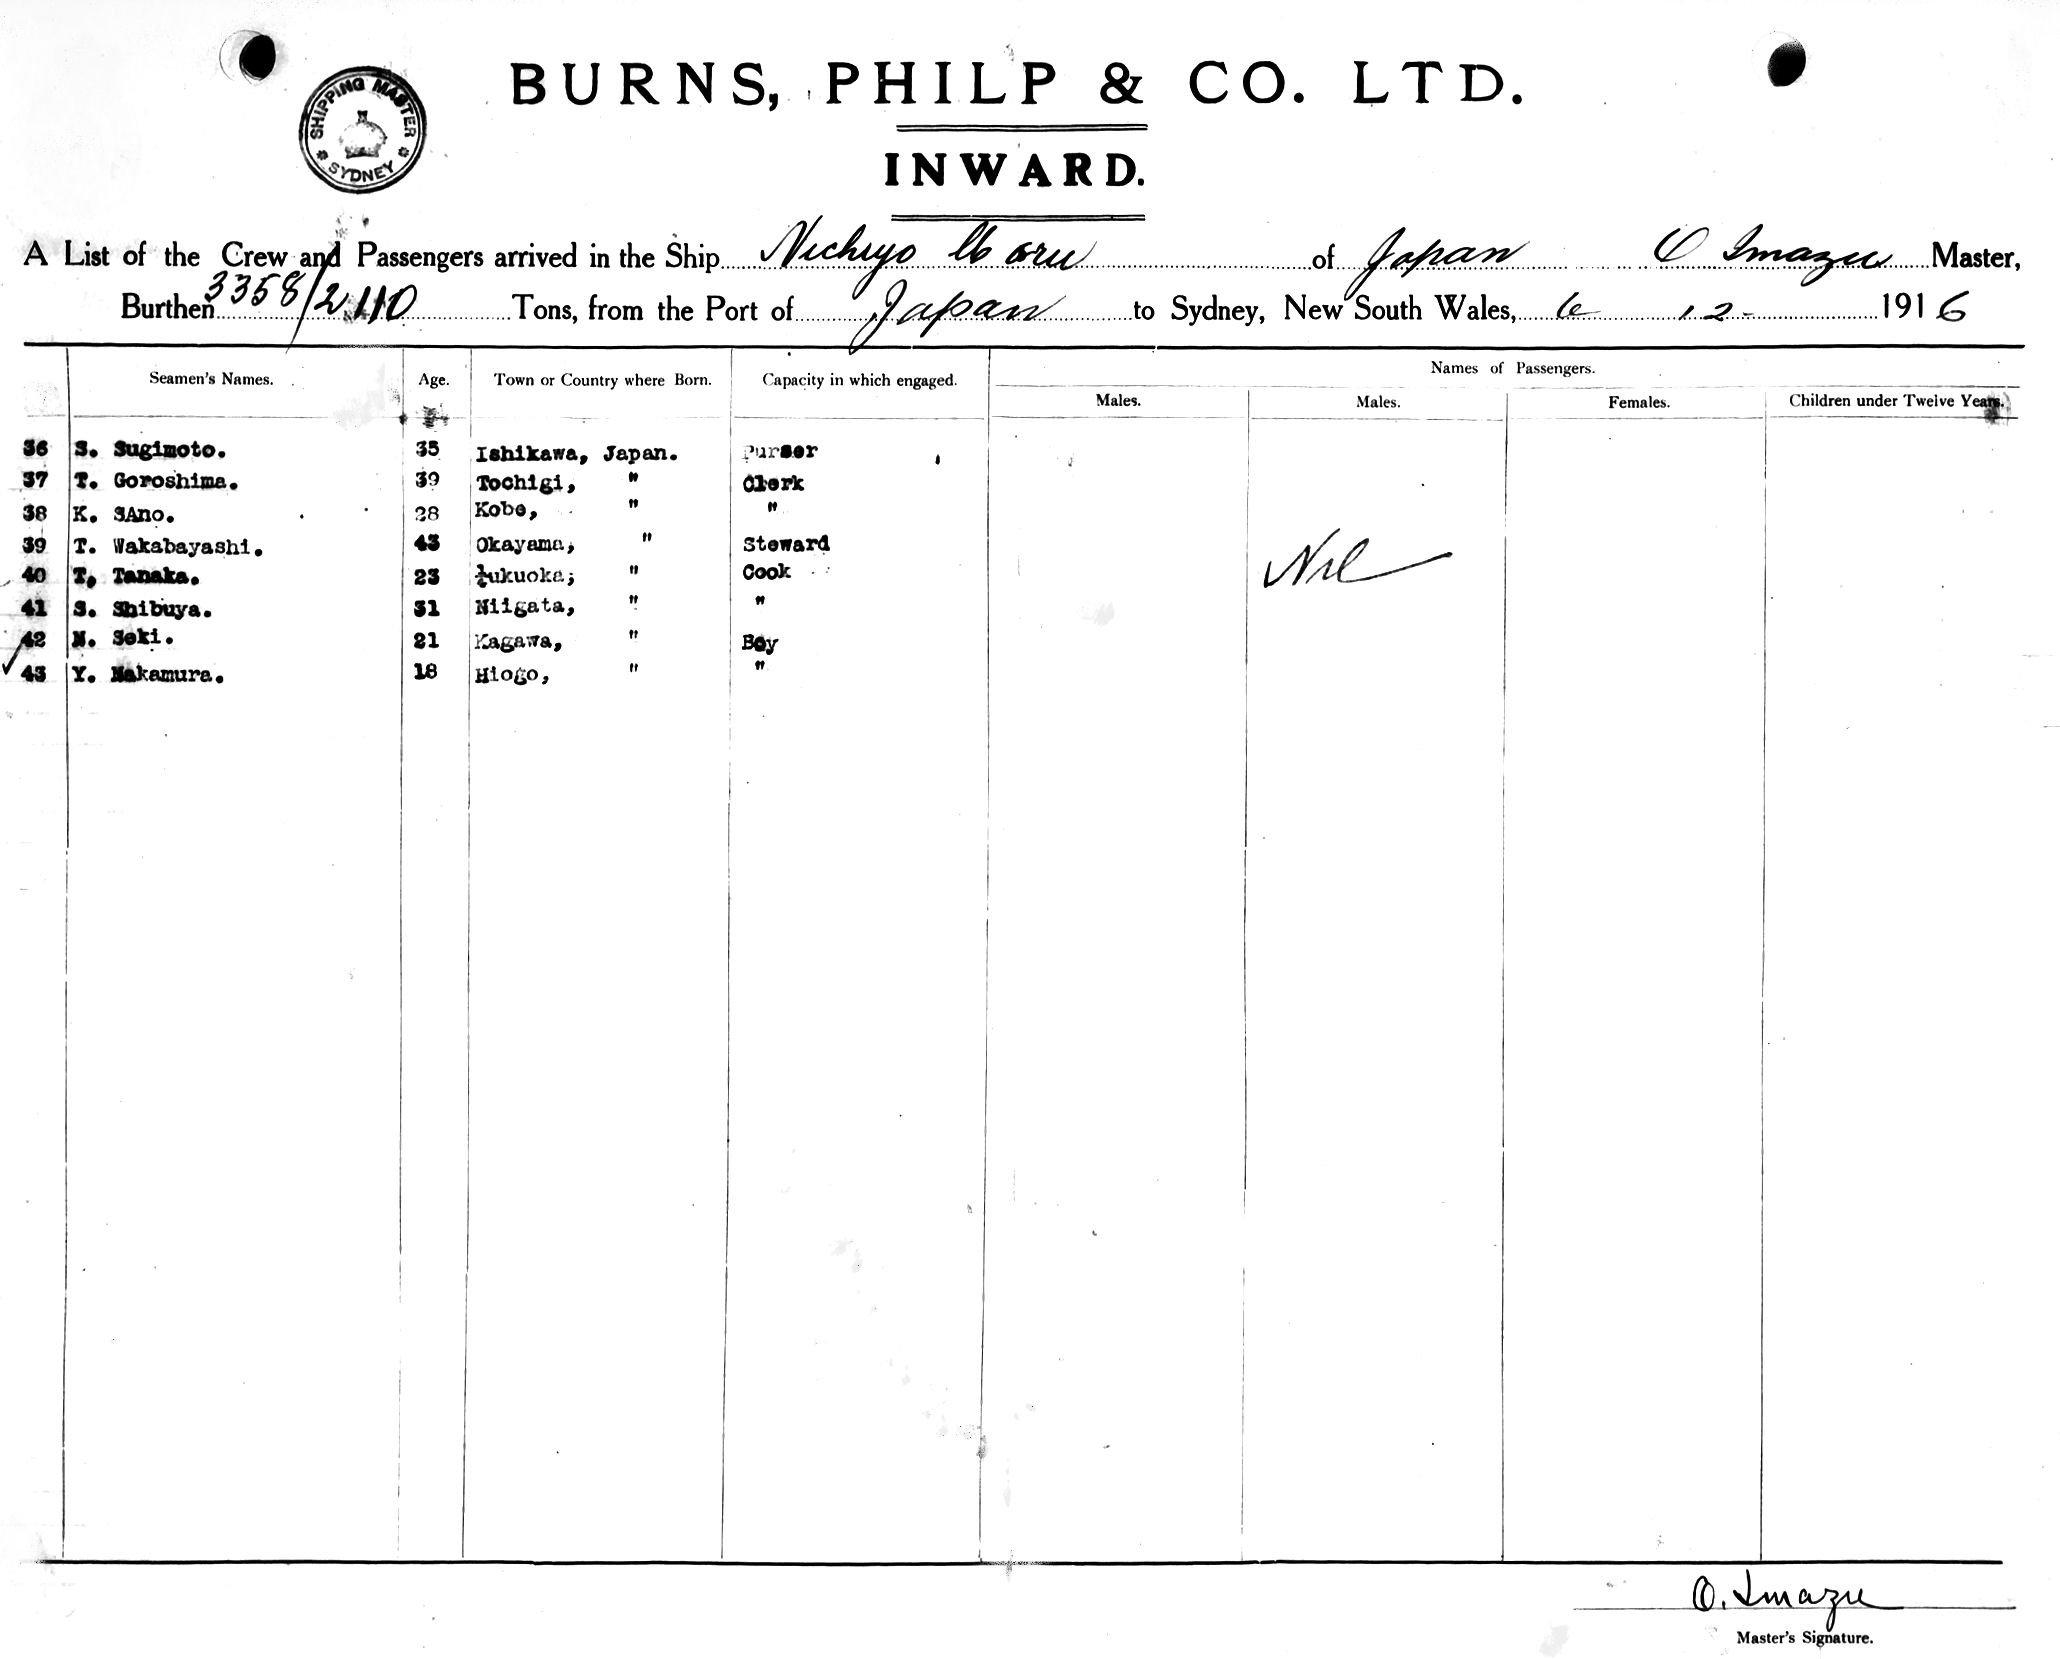 BURNS, PHILP & CO. LTD.
SHIPPING MASTER
SYDNEY
INWARD.
A List of the Crew and Passengers arrived in the Ship Nichiyo Maru of Japan O Imazu Master,
Burthen 3358/2110 Tons, from the Port of Japan to Sydney, New South Wales, 6 12- 1916
Seamen's Names. Age. Town or Country where Born. Capacity in which engaged. Names of Passengers.
Males. Males. Females. Children under Twelve Years.
36 S. Sugimoto. 35 Ishikawa, Japan. Purser
37 T. Goroshima. 39 Tochigi, " Clerk
38 K. SAno. 28 Kobe, " "
39 T. Wakabayashi. 43 Okayama, " Steward
40 T, Tanaka. 23 Fukuoka; " Cook
Nil
41 S. Shibuya. 31 Niigata, " "
42 N. Seki. 21 Kagawa, " Boy
43 Y. Nakamura. 18 Hiogo, " "
O. Imazu
Master's Signature.